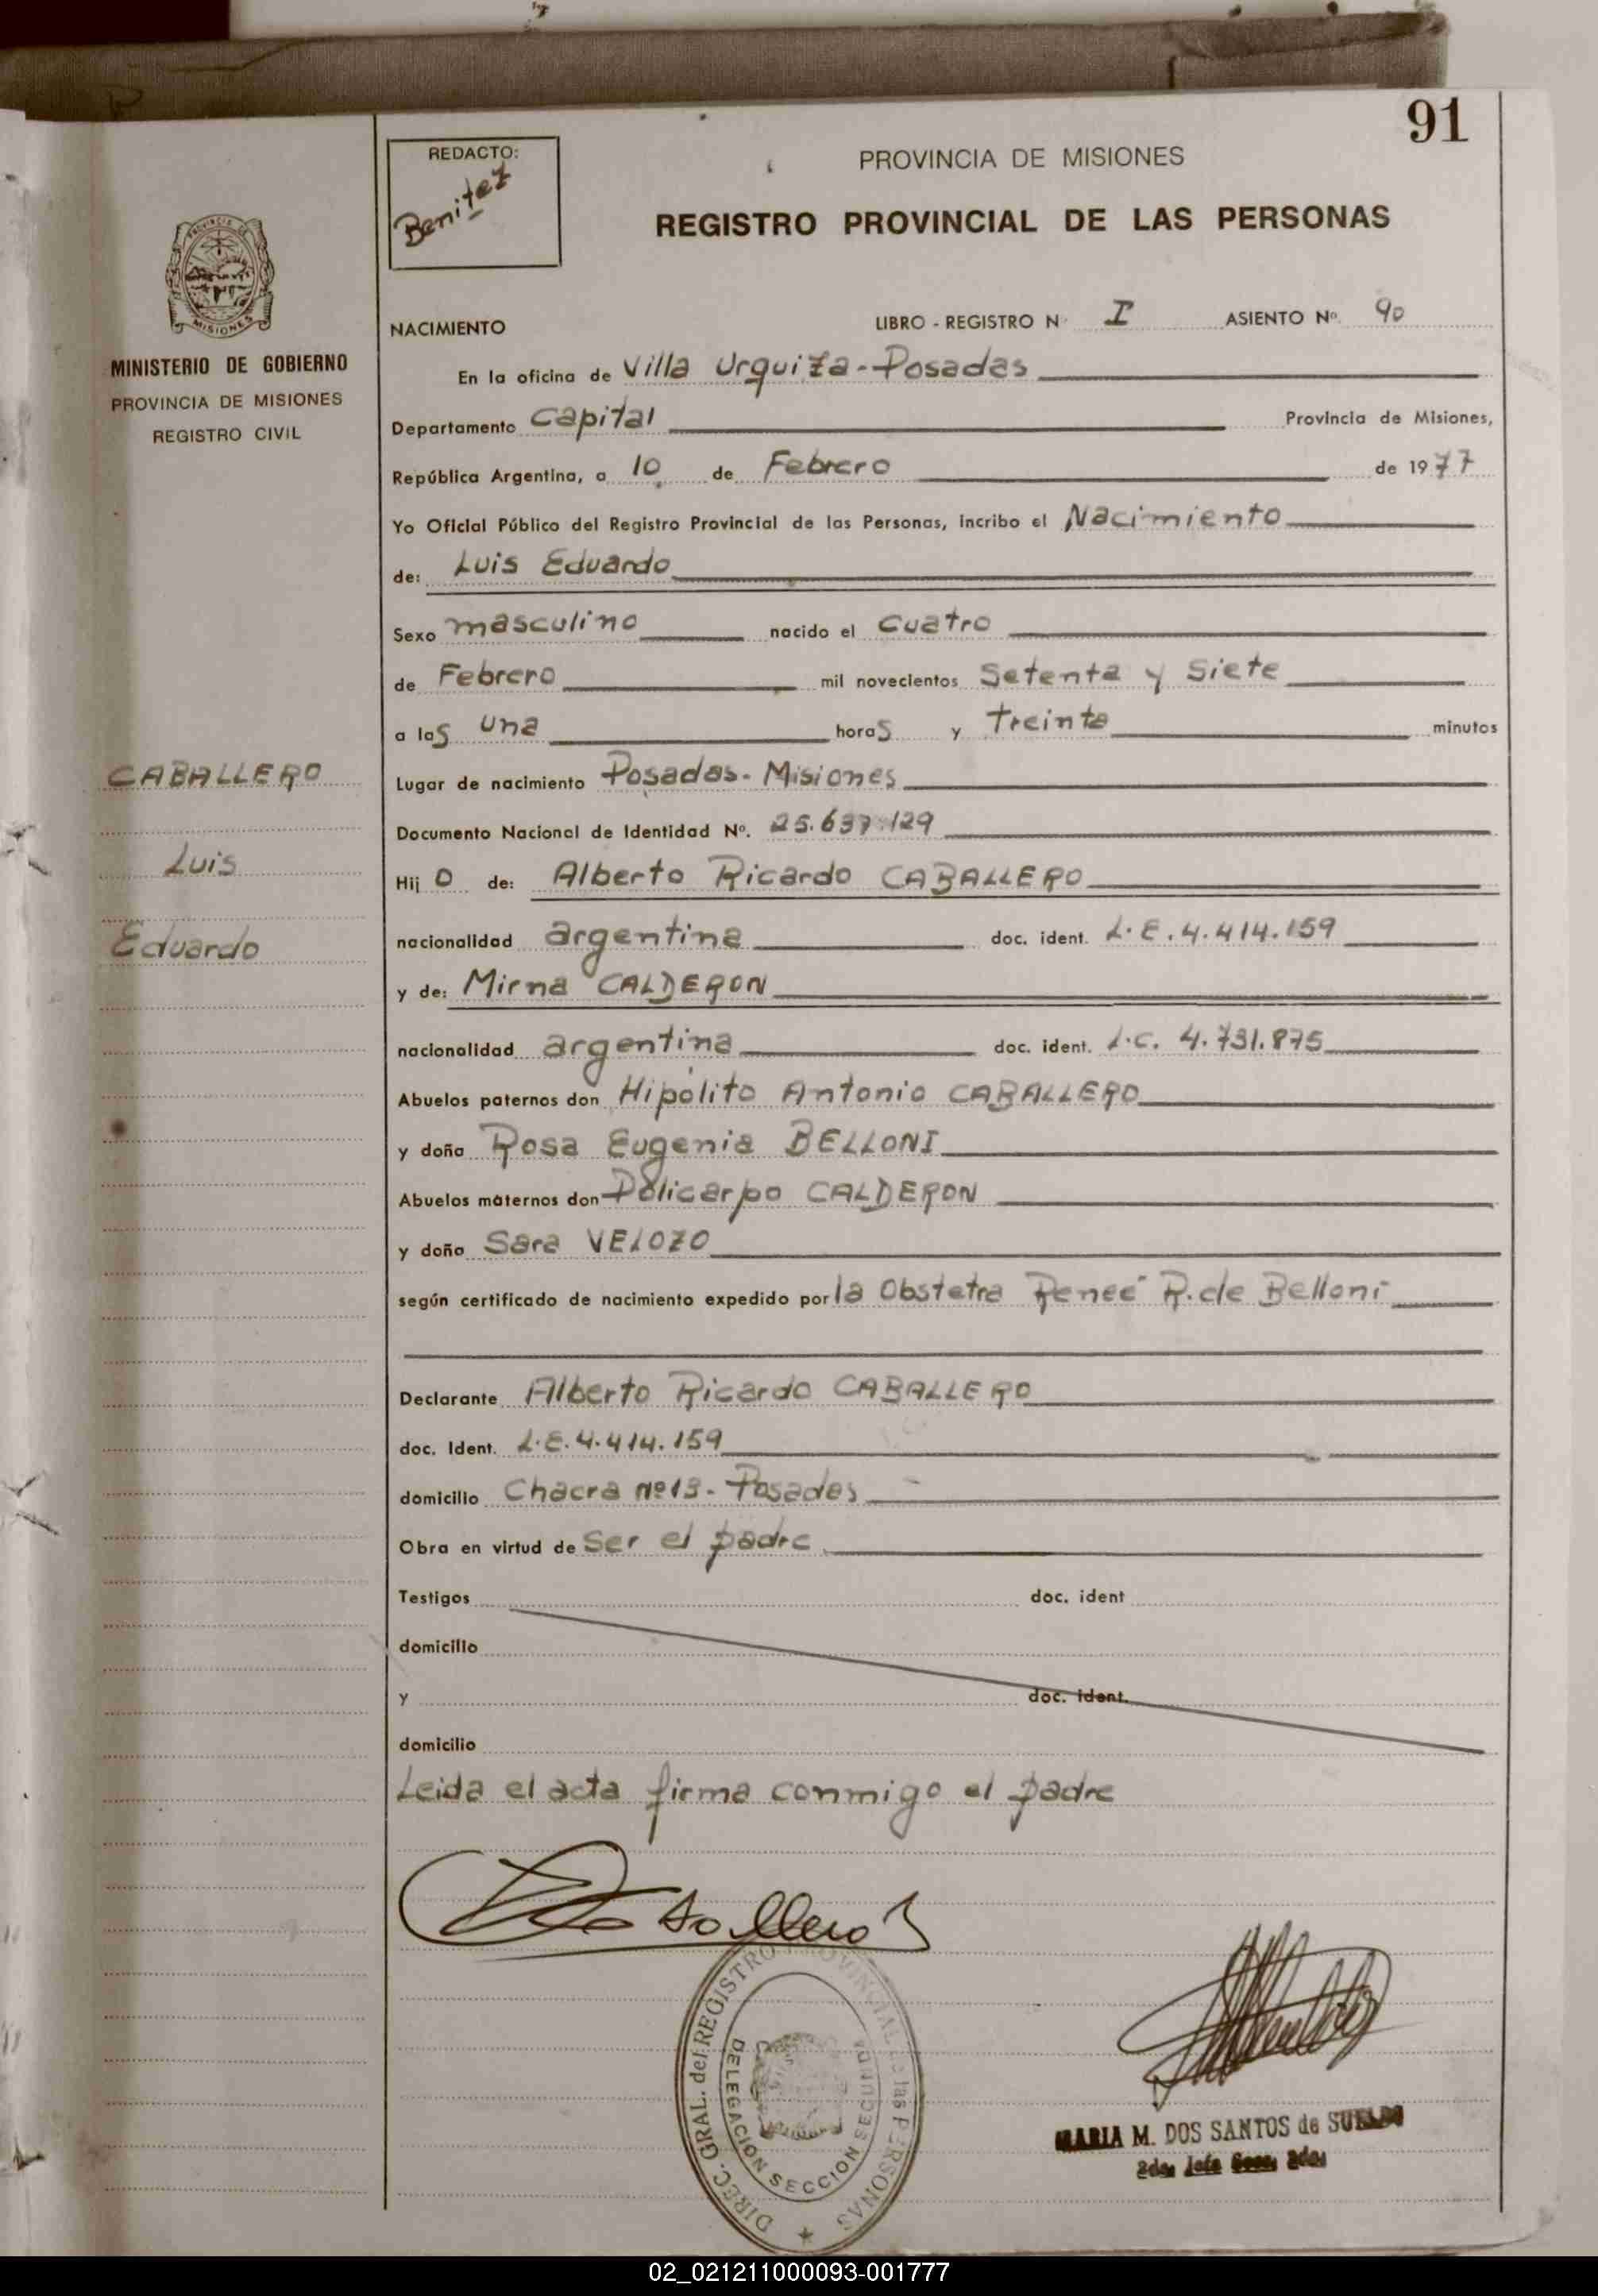 91
REDACTO:
Benitez
PROVINCIA DE MISIONES
REGISTRO PROVINCIAL DE LAS PERSONAS
PROVINCIA DE
MISIONES
MINISTERIO DE GOBIERNO
PROVINCIA DE MISIONES
REGISTRO CIVIL
CABALLERO
Luis
Eduardo
NACIMIENTO LIBRO - REGISTRO N° I ASIENTO Nº 90
En la oficina de Villa Urquiza - Posadas
Departamento Capital Provincia de Misiones,
República Argentina, a 10 de Febrero de 1977
Yo Oficial Público del Registro Provincial de las Personas, incribo el Nacimiento
de: Luis Eduardo
Sexo masculino nacido el cuatro
de Febrero mil novecientos Setenta y Siete
a las una horas y treinta minutos
Lugar de nacimiento Posadas - Misiones
Documento Nacional de Identidad Nº. 25.637.129
Hijo de: Alberto Ricardo CABALLERO
nacionalidad argentina doc. ident. L.E. 4.414.159
y de: Mirna CALDERON
nacionalidad argentina doc. ident. L.C. 4.731.875
Abuelos paternos don Hipólito Antonio CABALLERO
y doña Rosa Eugenia BELLONI
Abuelos maternos don Policarpo CALDERON
y doña Sara VELOZO
según certificado de nacimiento expedido por la Obstetra Reneé R. de Belloni
Declarante Alberto Ricardo CABALLERO
doc. Ident. L.E. 4.414.159
domicilio Chacra nº 13 - Posadas
Obra en virtud de ser el padre
Testigos doc. ident
domicilio
y doc. ident.
domicilio
Leida el acta firma conmigo el padre
DIREC. GRAL. del REGISTRO PROVINCIAL de las PERSONAS
DELEGACION SECCION SEGUNDA
MARIA M. DOS SANTOS de
02_021211000093-001777